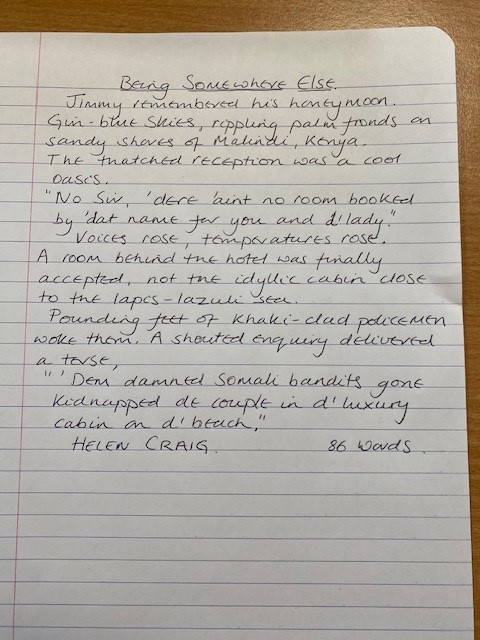 Being Somewhere Else.
Jimmy remembered his honeymoon.
Gin-blue skies, rippling palm fronds on
sandy shores of Malindi, Kenya.
The thatched reception was a cool
oasis.
"No Sir, 'dere 'aint no room booked
by 'dat name for you and d'lady."
Voices rose, temperatures rose.
A room behind the hotel was finally
accepted, not the idyllic cabin close
to the lapis-lazuli sea.
Pounding feet of khaki-clad policemen
woke them. A shouted enquiry delivered
a terse,
"'Dem damned Somali bandits gone
kidnapped de couple in d'luxury
cabin on d'beach."
HELEN CRAIG. 86 words.